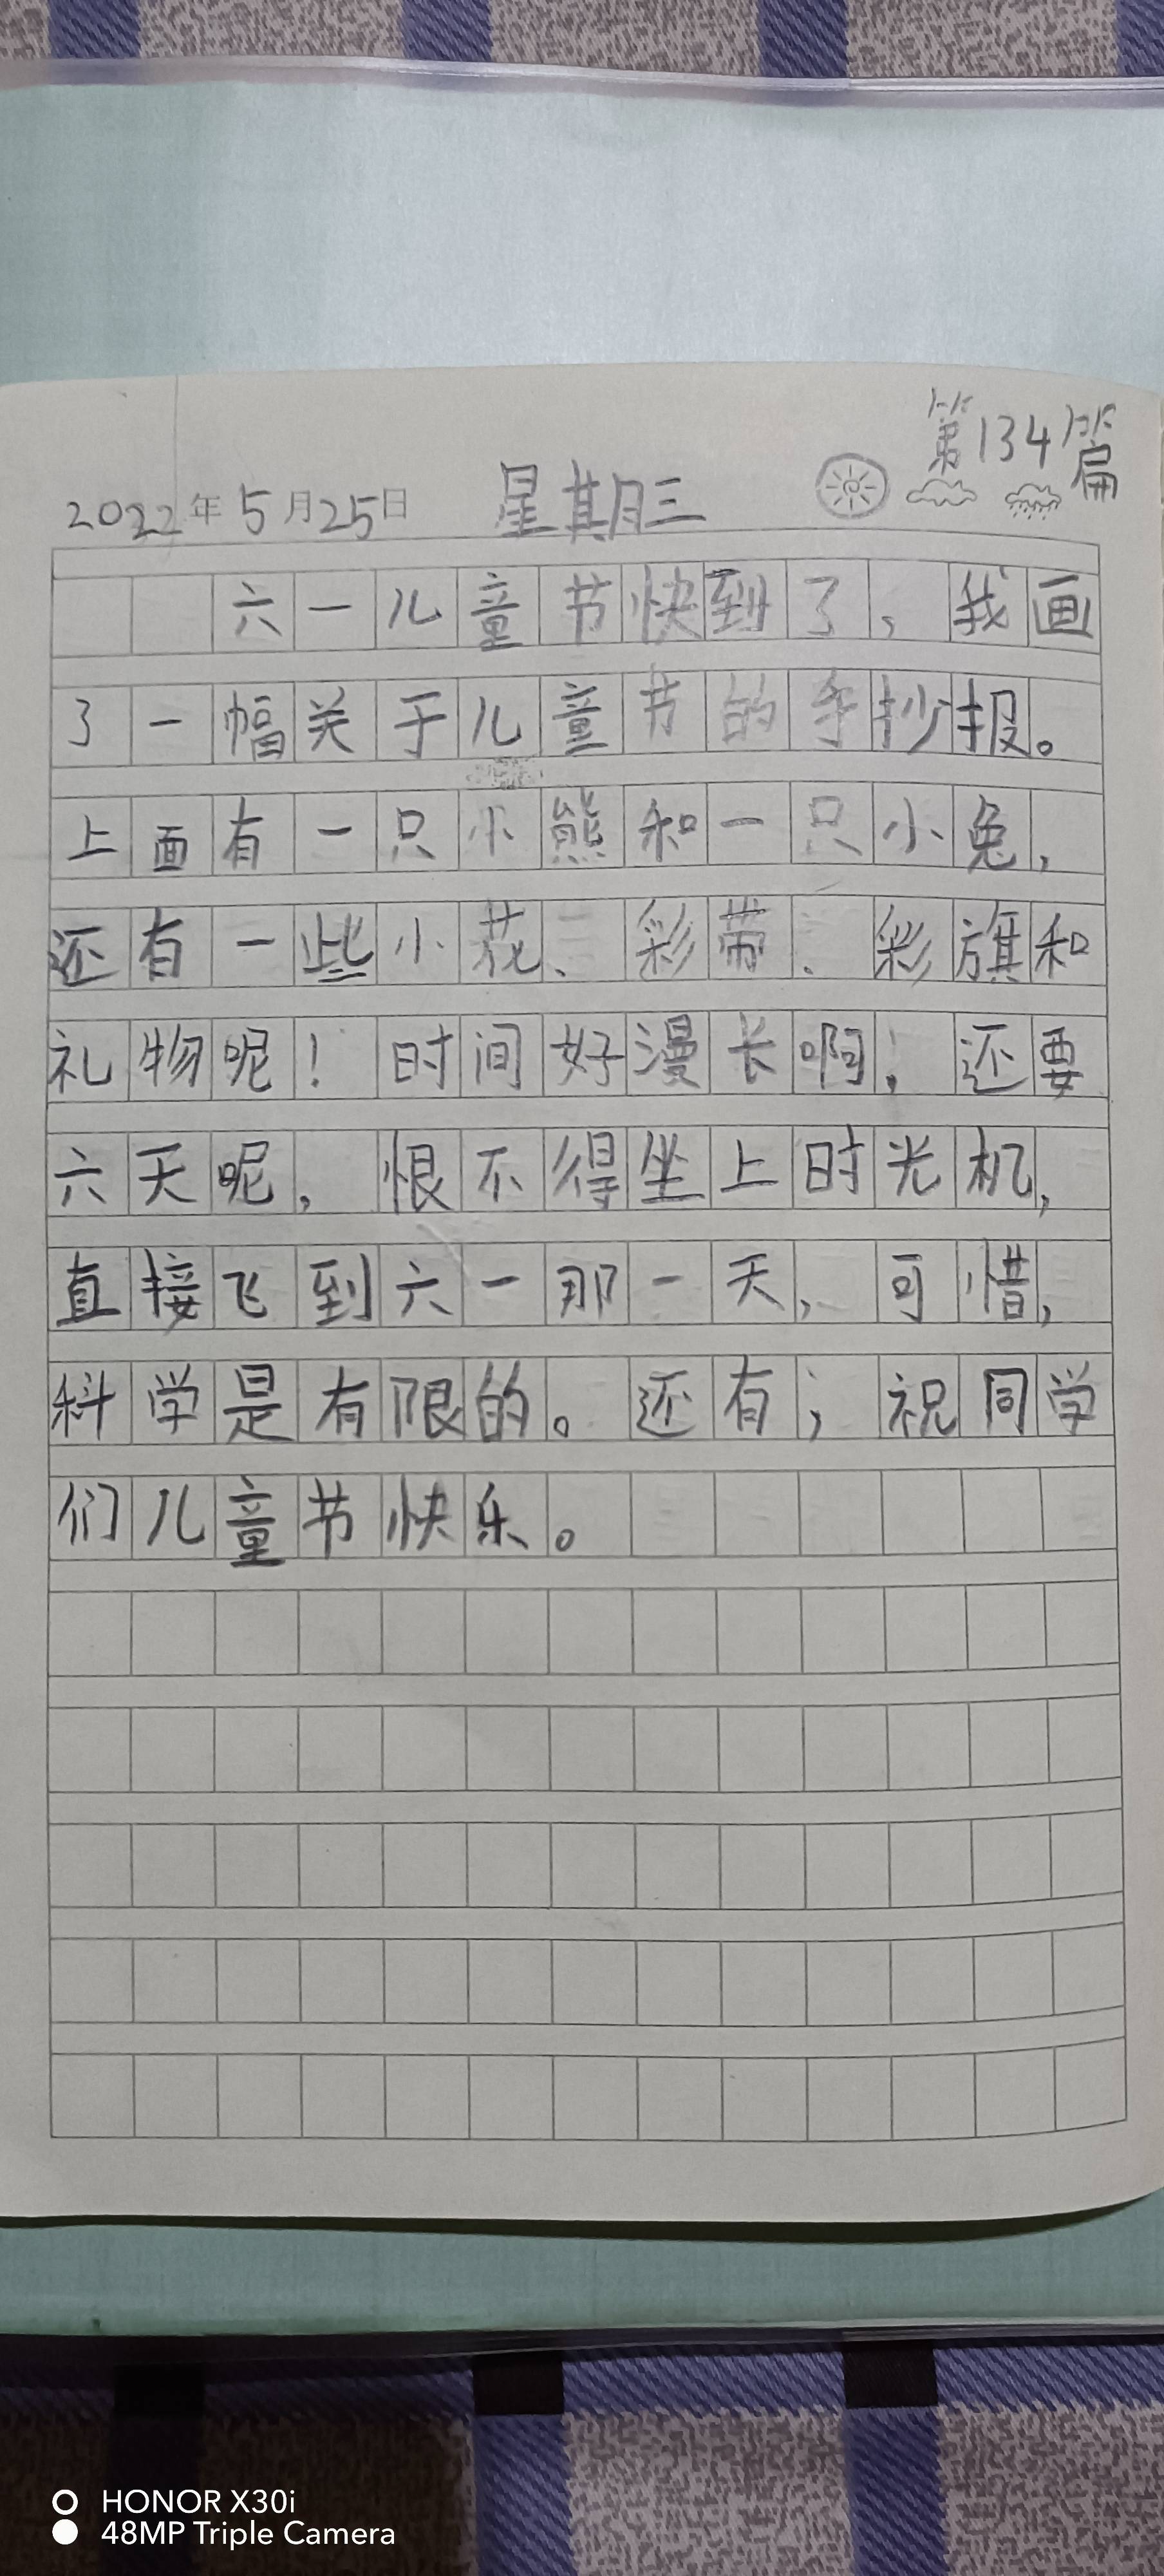 第134篇
2022年5月25日 星期三
六一儿童节快到了，我画
了一幅关于儿童节的手抄报。
上面有一只小熊和一只小兔，
还有一些小花、彩带、彩旗和
礼物呢！时间好漫长啊！还要
六天呢，恨不得坐上时光机，
直接飞到六一那一天，可惜，
科学是有限的。还有；祝同学
们儿童节快乐。
HONOR X30i
48MP Triple Camera